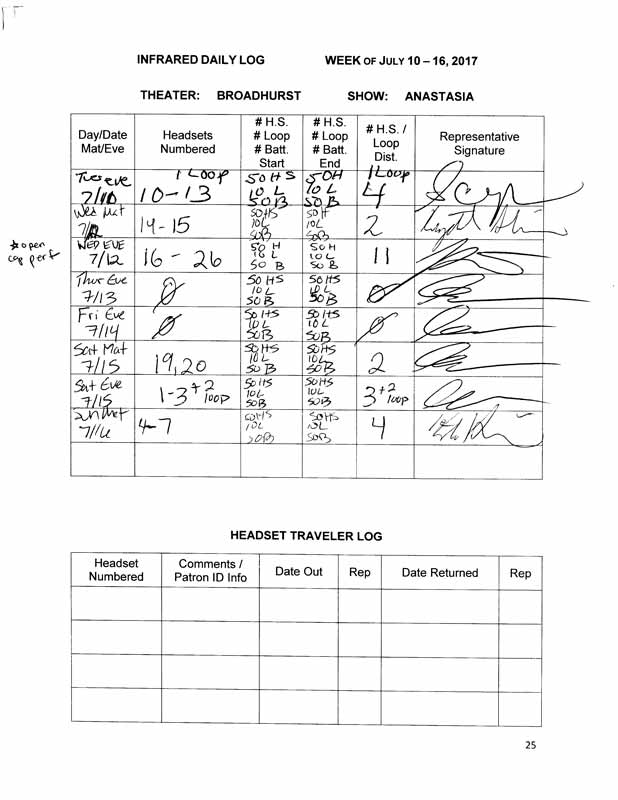 INFRARED DAILY LOG WEEK OF JULY 10 – 16, 2017
THEATER: BROADHURST SHOW: ANASTASIA
Day/Date
Mat/Eve
Headsets
Numbered
# H.S.
# Loop
# Batt.
Start
# H.S.
# Loop
# Batt.
End
# H.S. /
Loop
Dist.
Representative
Signature
Tues eve
7/11
1 Loop
10-13
50 HS
10 L
50B
50H
10 L
50 B
1 Loop
4
Wed Mat
7/12
14-15
50HS
10L
50B
50H
10L
50B
2
*open
cap perf
WED EVE
7/12
16 - 26
50 H
10 L
50 B
50 H
10 L
50 B
11
Thur Eve
7/13
0
50 HS
10 L
50B
50 HS
10 L
50B
0
Fri Eve
7/14
0
50 HS
10 L
50B
50 HS
10 L
50B
0
Sat Mat
7/15
19,20
50HS
10L
50B
50HS
10L
50B
2
Sat Eve
7/15
1-3 +2 loop
50HS
10L
50B
50HS
10L
50B
3 +2 loop
Sun Mat
7/16
4-7
50HS
10L
50B
50HS
10L
50B
4
HEADSET TRAVELER LOG
Headset
Numbered
Comments /
Patron ID Info
Date Out
Rep
Date Returned
Rep
25